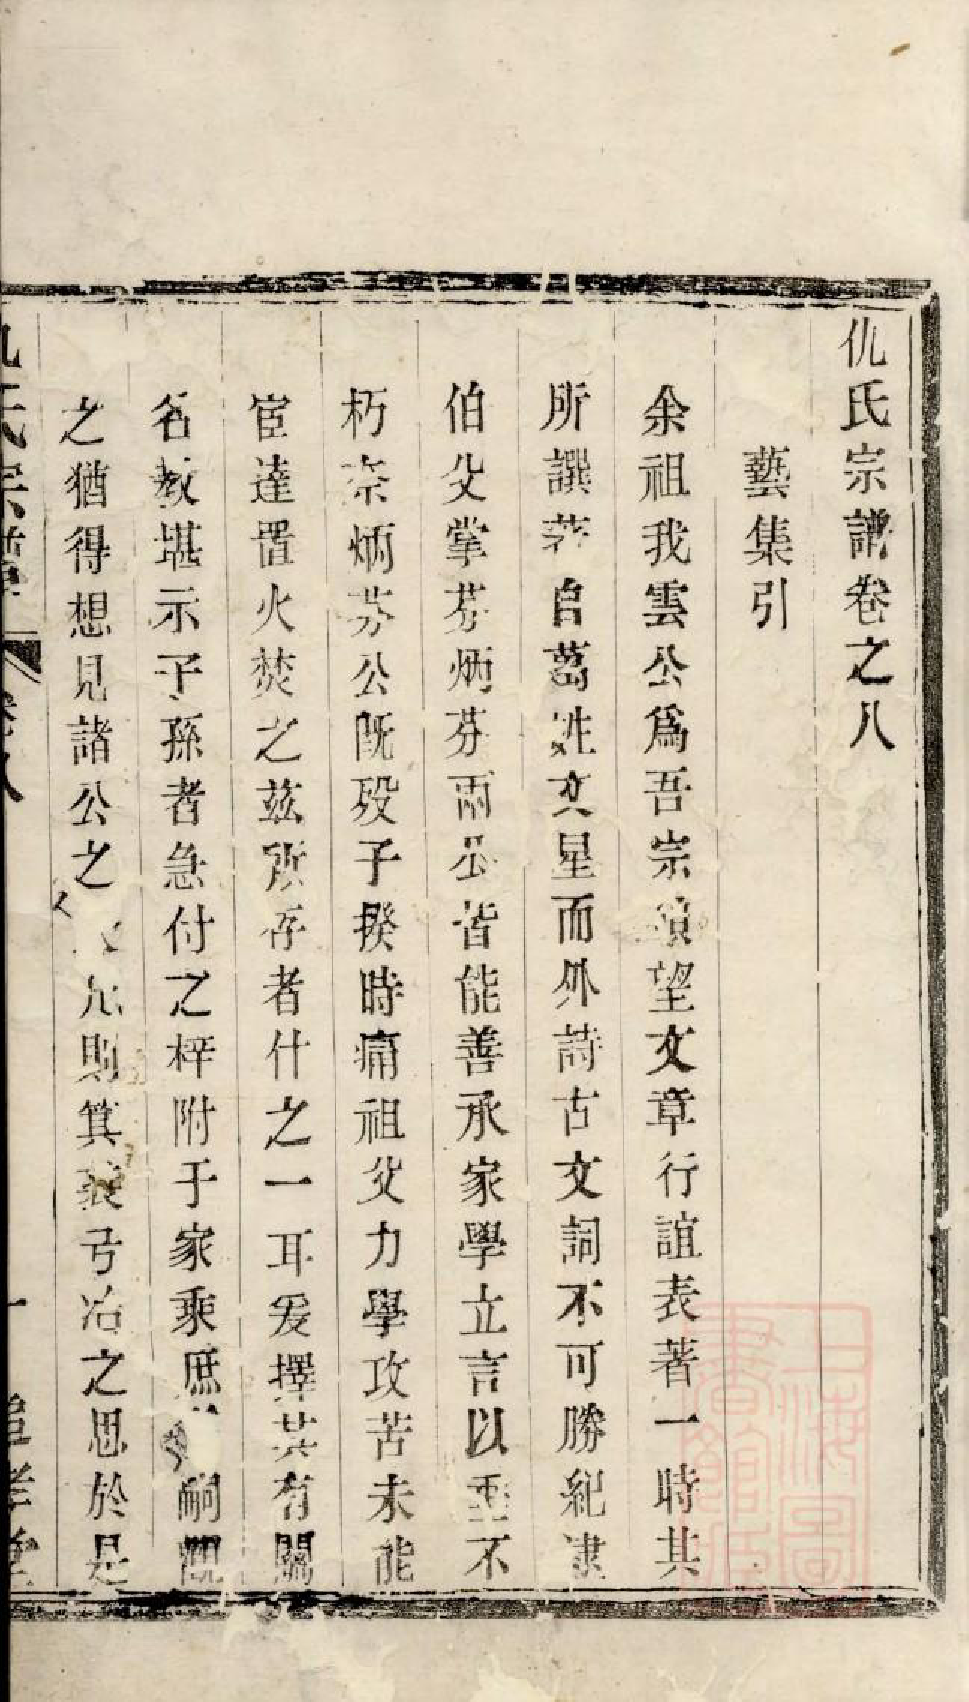 仇氏宗譜卷之八
藝集引
余祖我雲公爲吾宗碩望文章行誼表著一時其
所譔著自葛姓文星而外詩古文詞不可勝紀逮
伯父掌芬炳芬兩公皆能善承家學立言以垂不
朽奈炳芬公既歿子揆時痛祖父力學攻苦未能
宦達置火焚之茲所存者什之一耳爰擇其有關
名教堪示子孫者急付之梓附于家乘庶嗣觀
之猶得想見諸公之則箕裘弓冶之思於是
仇氏宗譜 卷八 一 追孝堂
上海圖書館藏